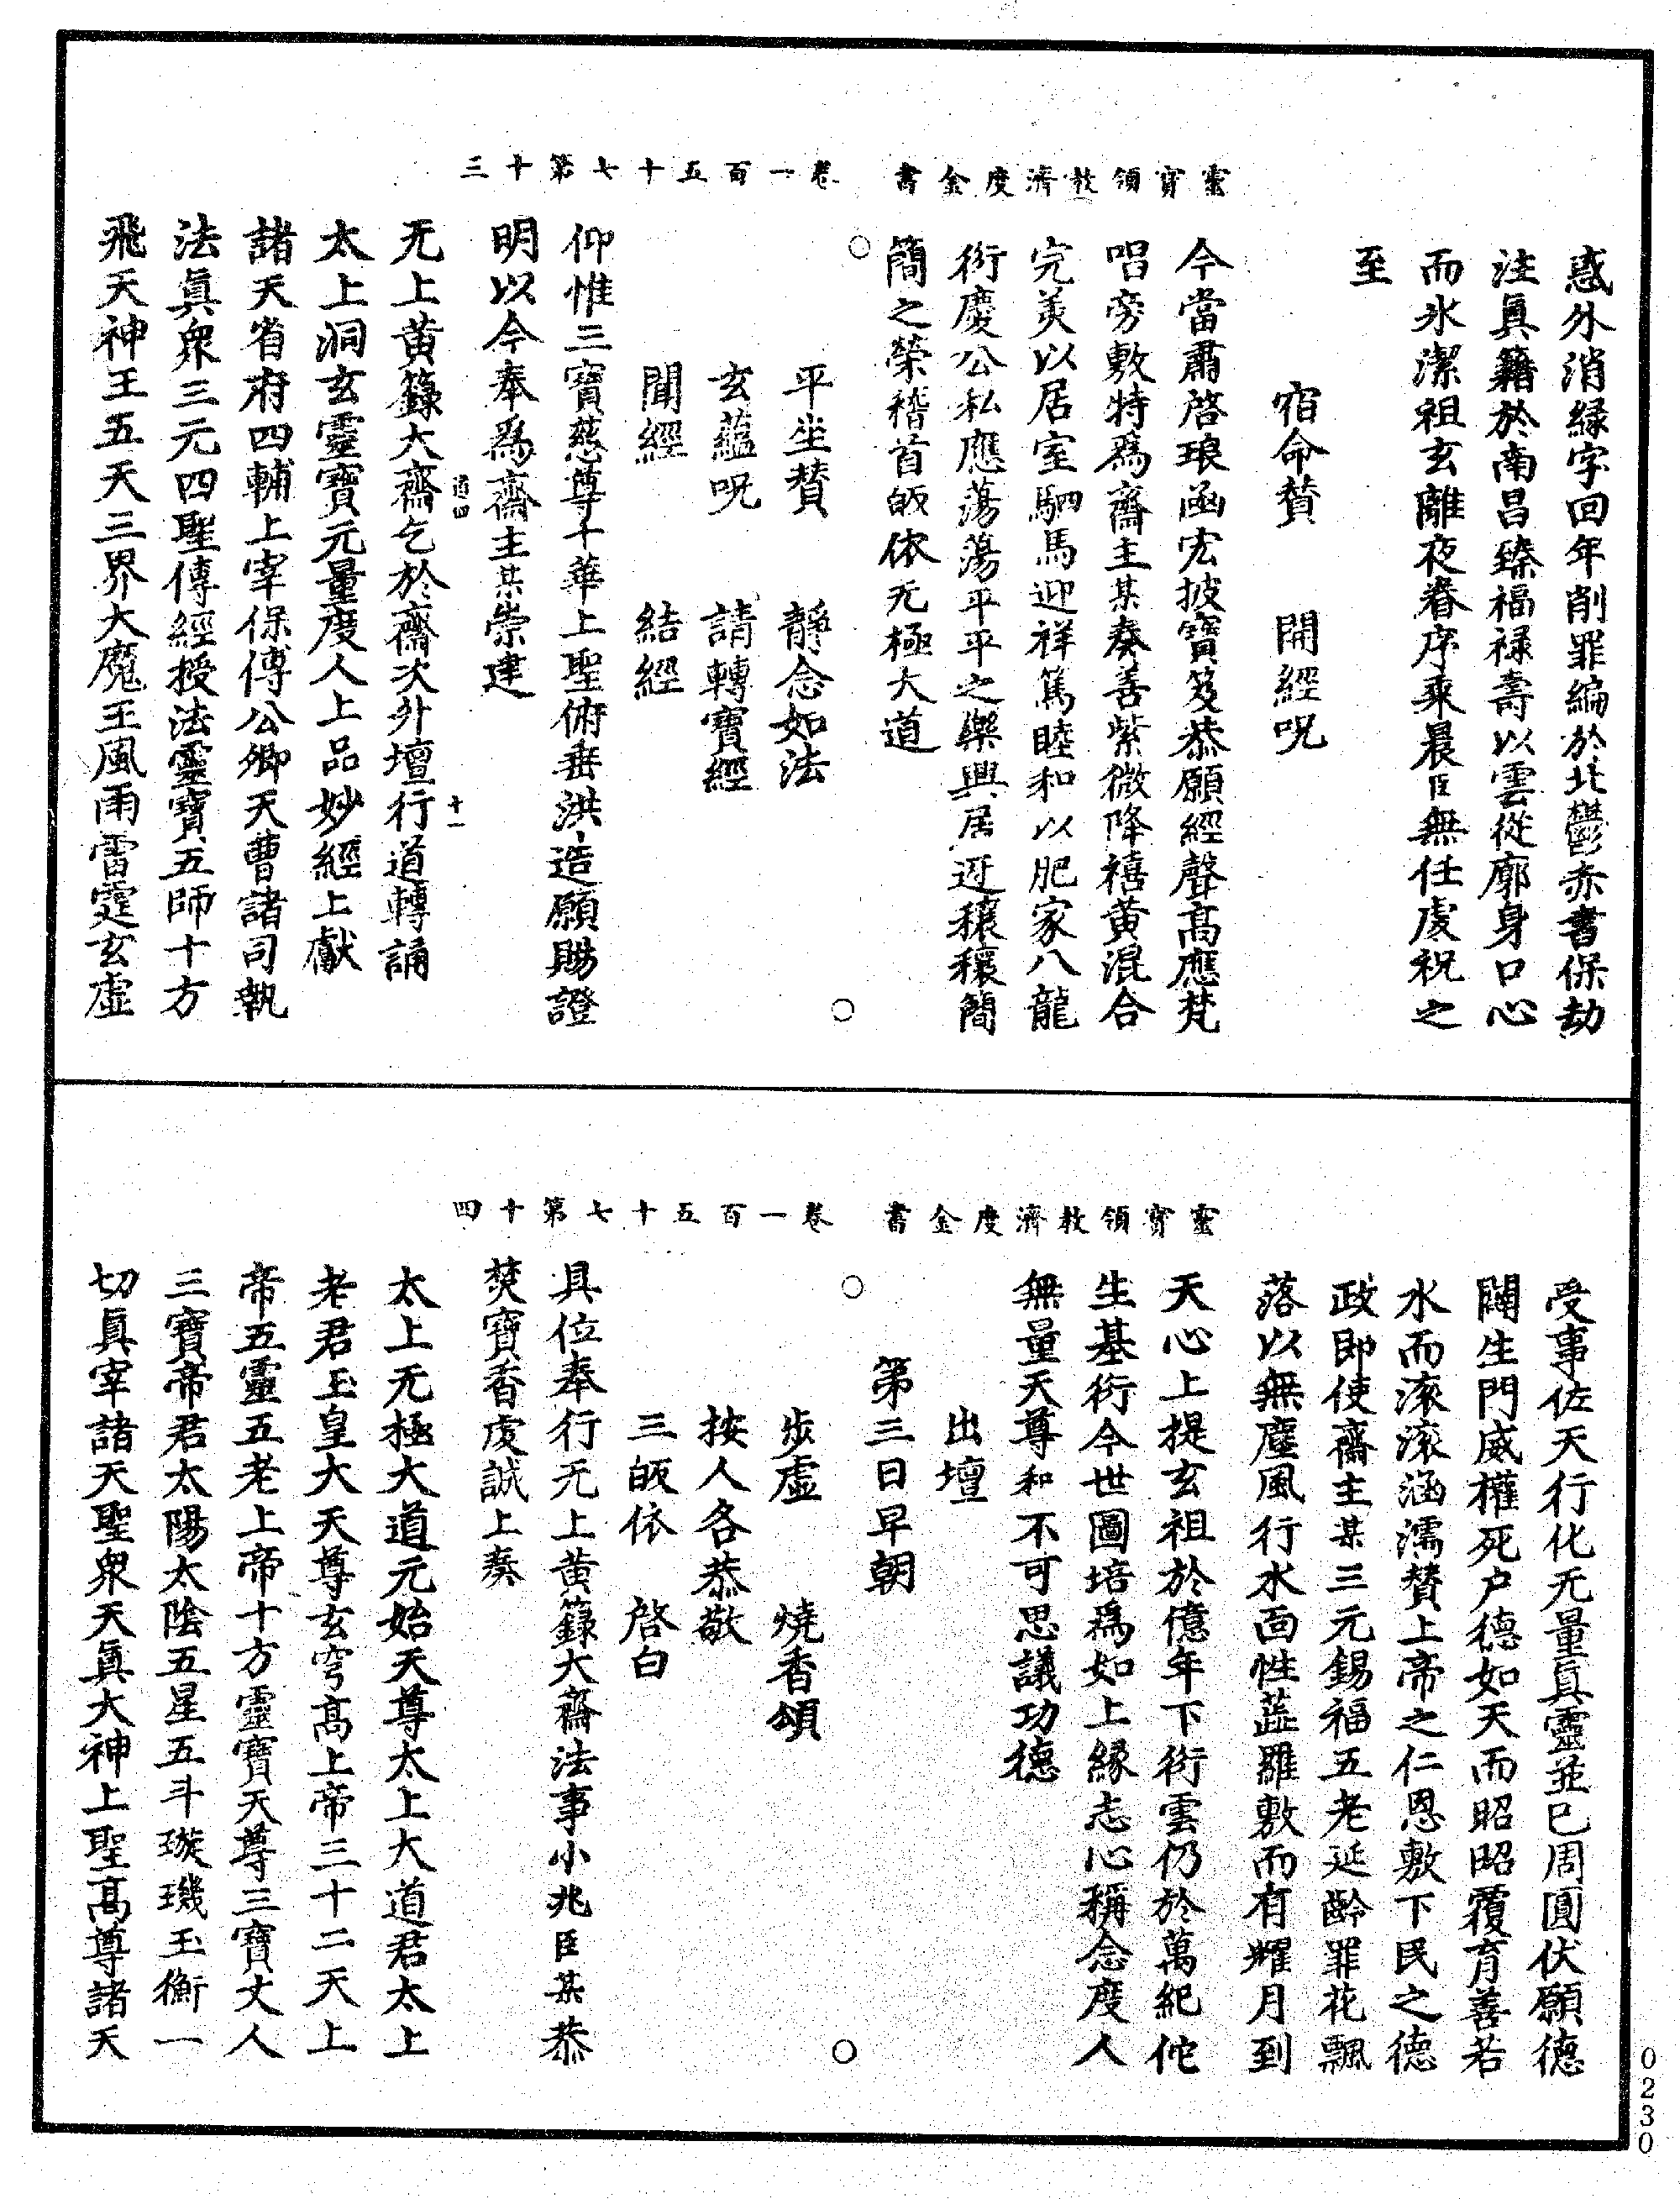 靈寶領教濟度金書　卷一百五十七第十三
惑外消緣字回年削罪編於北鬱赤書保劫
注真籍於南昌臻福祿壽以雲從廓身口心
而氷潔祖玄離夜眷序乘晨臣無任虔祝之
至
宿命贊　開經呪
今當肅啓琅函宏披寶笈恭願經聲高應梵
唱旁敷特爲齋主某奏善紫微降禧黄混合
完美以居室駟馬迎祥篤睦和以肥家八龍
衍慶公私應蕩蕩平平之樂興居迓穰穰簡
簡之榮稽首皈依无極大道
平坐贊　靜念如法
玄蘊呪　請轉寶經
聞經　結經
仰惟三寶慈尊十華上聖俯垂洪造願賜證
明以今奉爲齋主某崇建
道四　十一
无上黄籙大齋乞於齋次外壇行道轉誦
太上洞玄靈寶元量度人上品妙經上獻
諸天省府四輔上宰保傅公卿天曹諸司執
法眞衆三元四聖傳經授法靈寶五師十方
飛天神王五天三界大魔王風雨雷霆玄虛
靈寶領教濟度金書　卷一百五十七第十四
受事佐天行化无量眞靈並已周圓伏願德
闢生門威權死户德如天而昭昭覆育善若
水而滚滚涵濡賛上帝之仁恩敷下民之德
政即使齋主某三元錫福五老延齡罪花飄
落以無塵風行水面性蕋羅敷而有耀月到
天心上提玄祖於億年下衍雲仍於萬紀佗
生基衍今世圖培爲如上緣志心稱念度人
無量天尊和不可思議功德
出壇
第三日早朝
步虛　燒香頌
按人各恭敬
三皈依　啓白
具位奉行无上黄籙大齋法事小兆臣某恭
焚寶香虔誠上奏
太上无極大道元始天尊太上大道君太上
老君玉皇大天尊玄穹高上帝三十二天上
帝五靈五老上帝十方靈寶天尊三寶丈人
三寶帝君太陽太陰五星五斗璇璣玉衡一
切眞宰諸天聖衆天眞大神上聖高尊諸天
0230